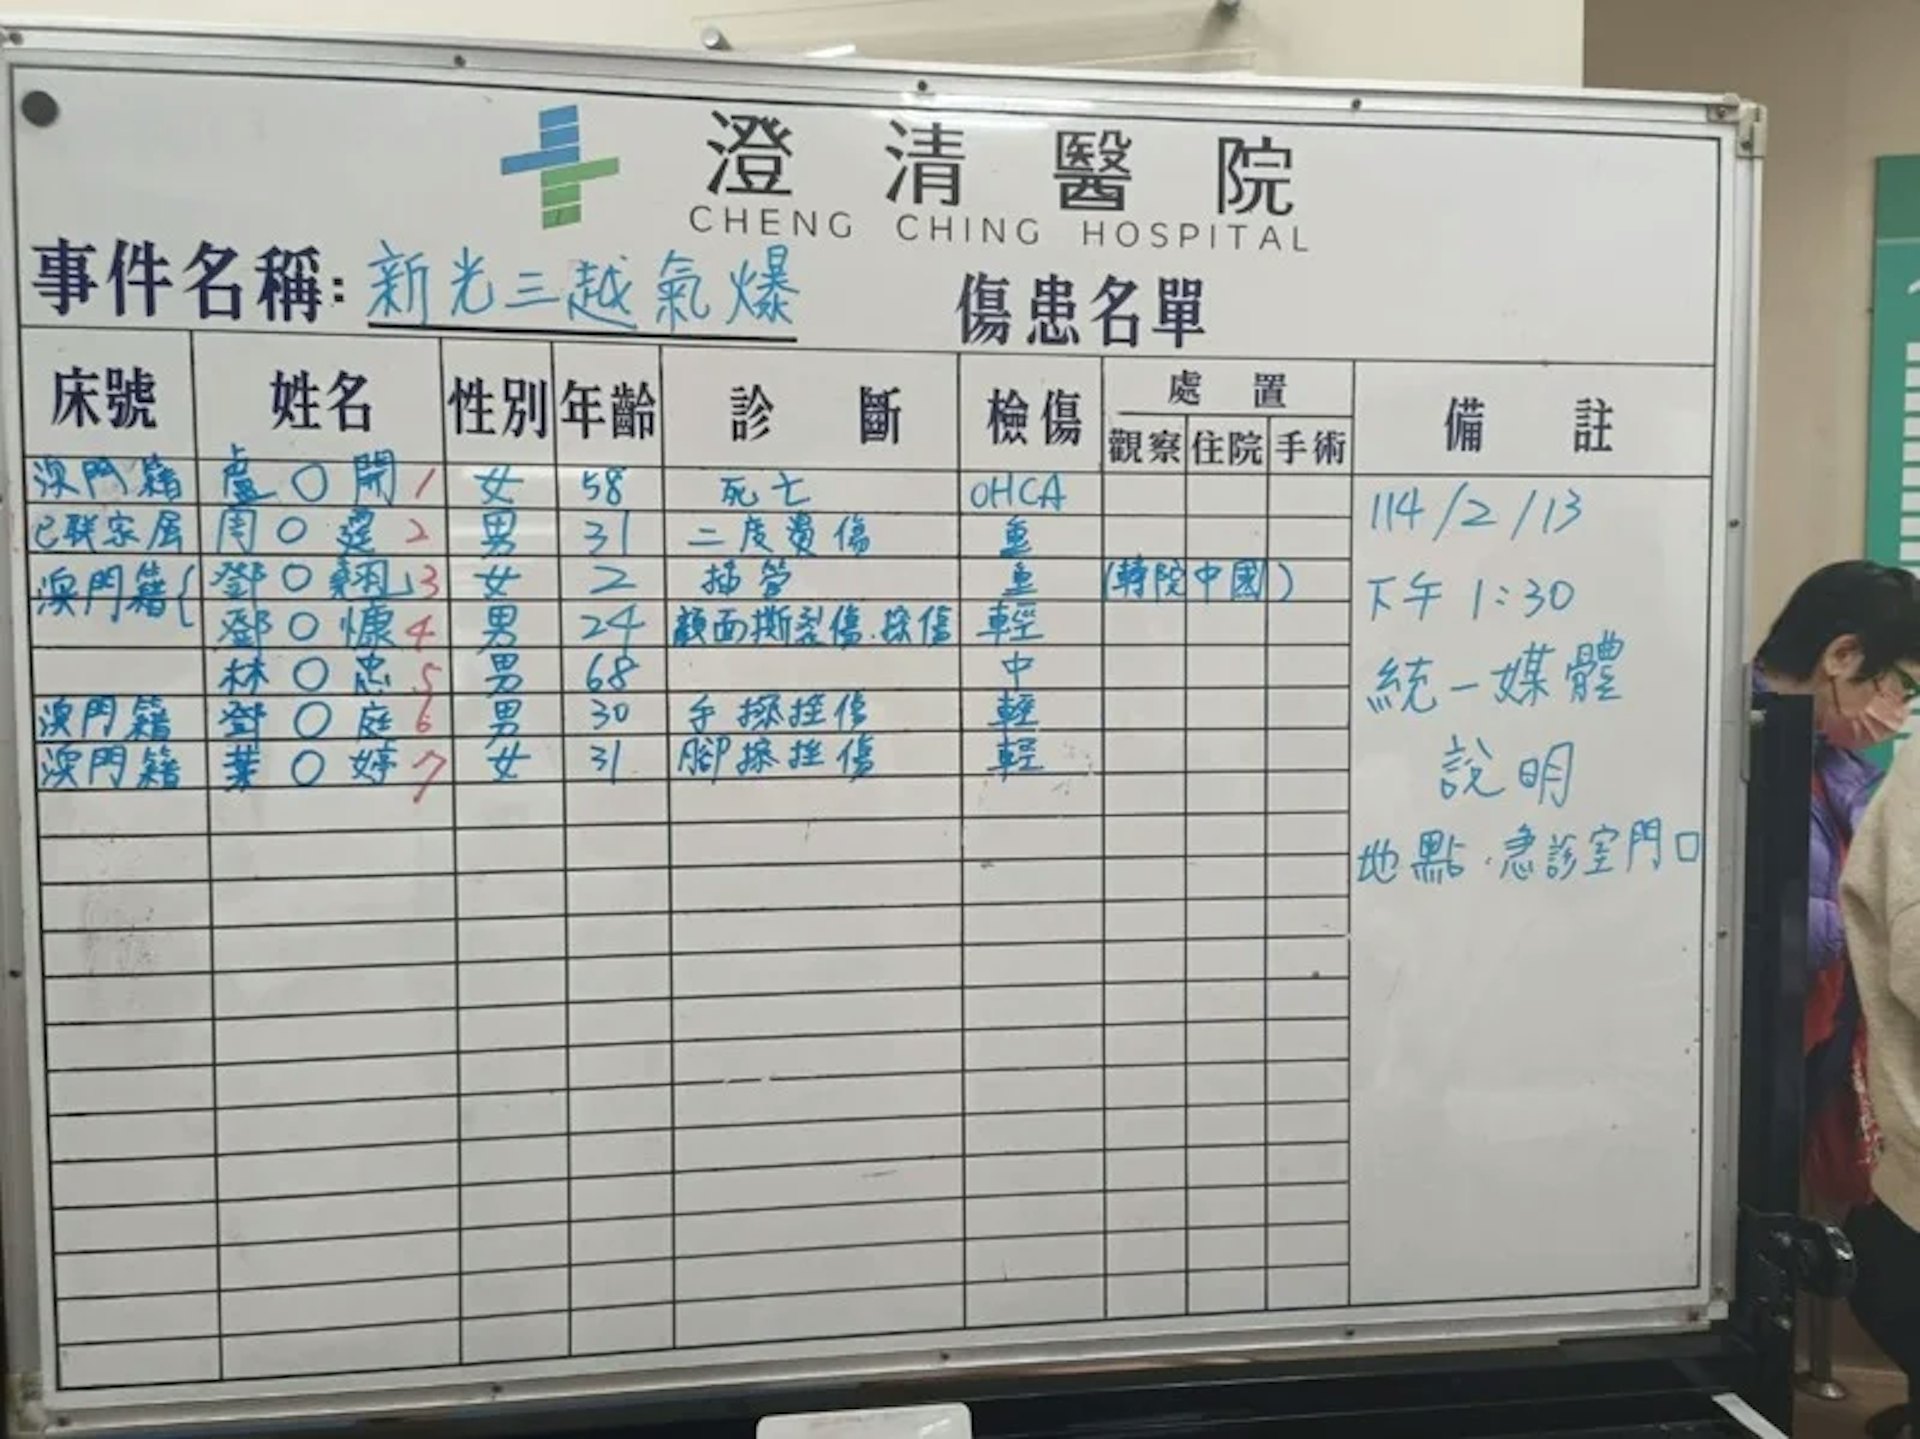 澄清醫院
CHENG CHING HOSPITAL
事件名稱: 新光三越氣爆 傷患名單
床號 姓名 性別 年齡 診斷 檢傷 處置 備註
觀察 住院 手術
澳門籍 盧○開 1 女 58 死亡 OHCA
已联家屬 周○霆 2 男 31 二度燙傷 重
澳門籍{ 鄧○翹 3 女 2 插管 重 (轉院中國)
鄧○慷 4 男 24 顏面撕裂傷.擦傷 輕
林○忠 5 男 68 中
澳門籍 鄧○庭 6 男 30 手擦挫傷 輕
澳門籍 葉○婷 7 女 31 腳擦挫傷 輕
114/2/13
下午 1:30
統一媒體
說明
地點.急診室門口